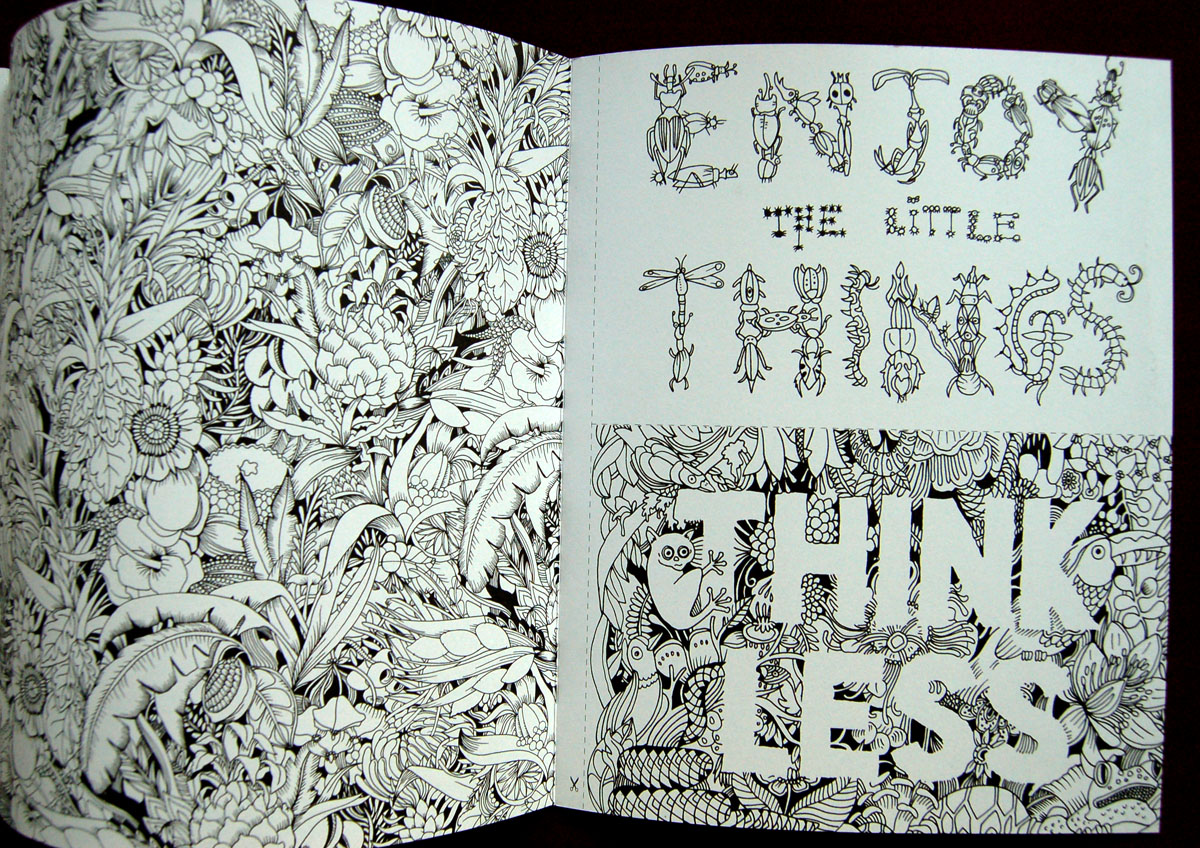 ENJOY
THE LITTLE
THINGS
THINK
LESS